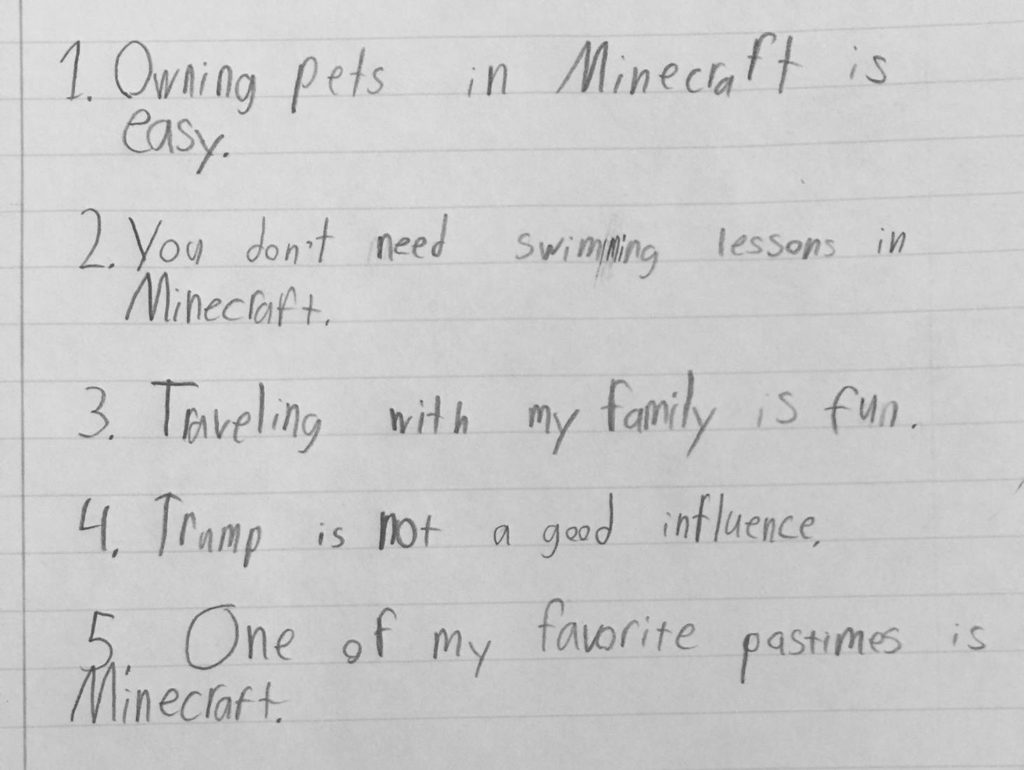 1. Owning pets in Minecraft is
easy.
2. You don't need swimming lessons in
Minecraft.
3. Traveling with my family is fun.
4. Trump is not a good influence.
5. One of my favorite pastimes is
Minecraft.